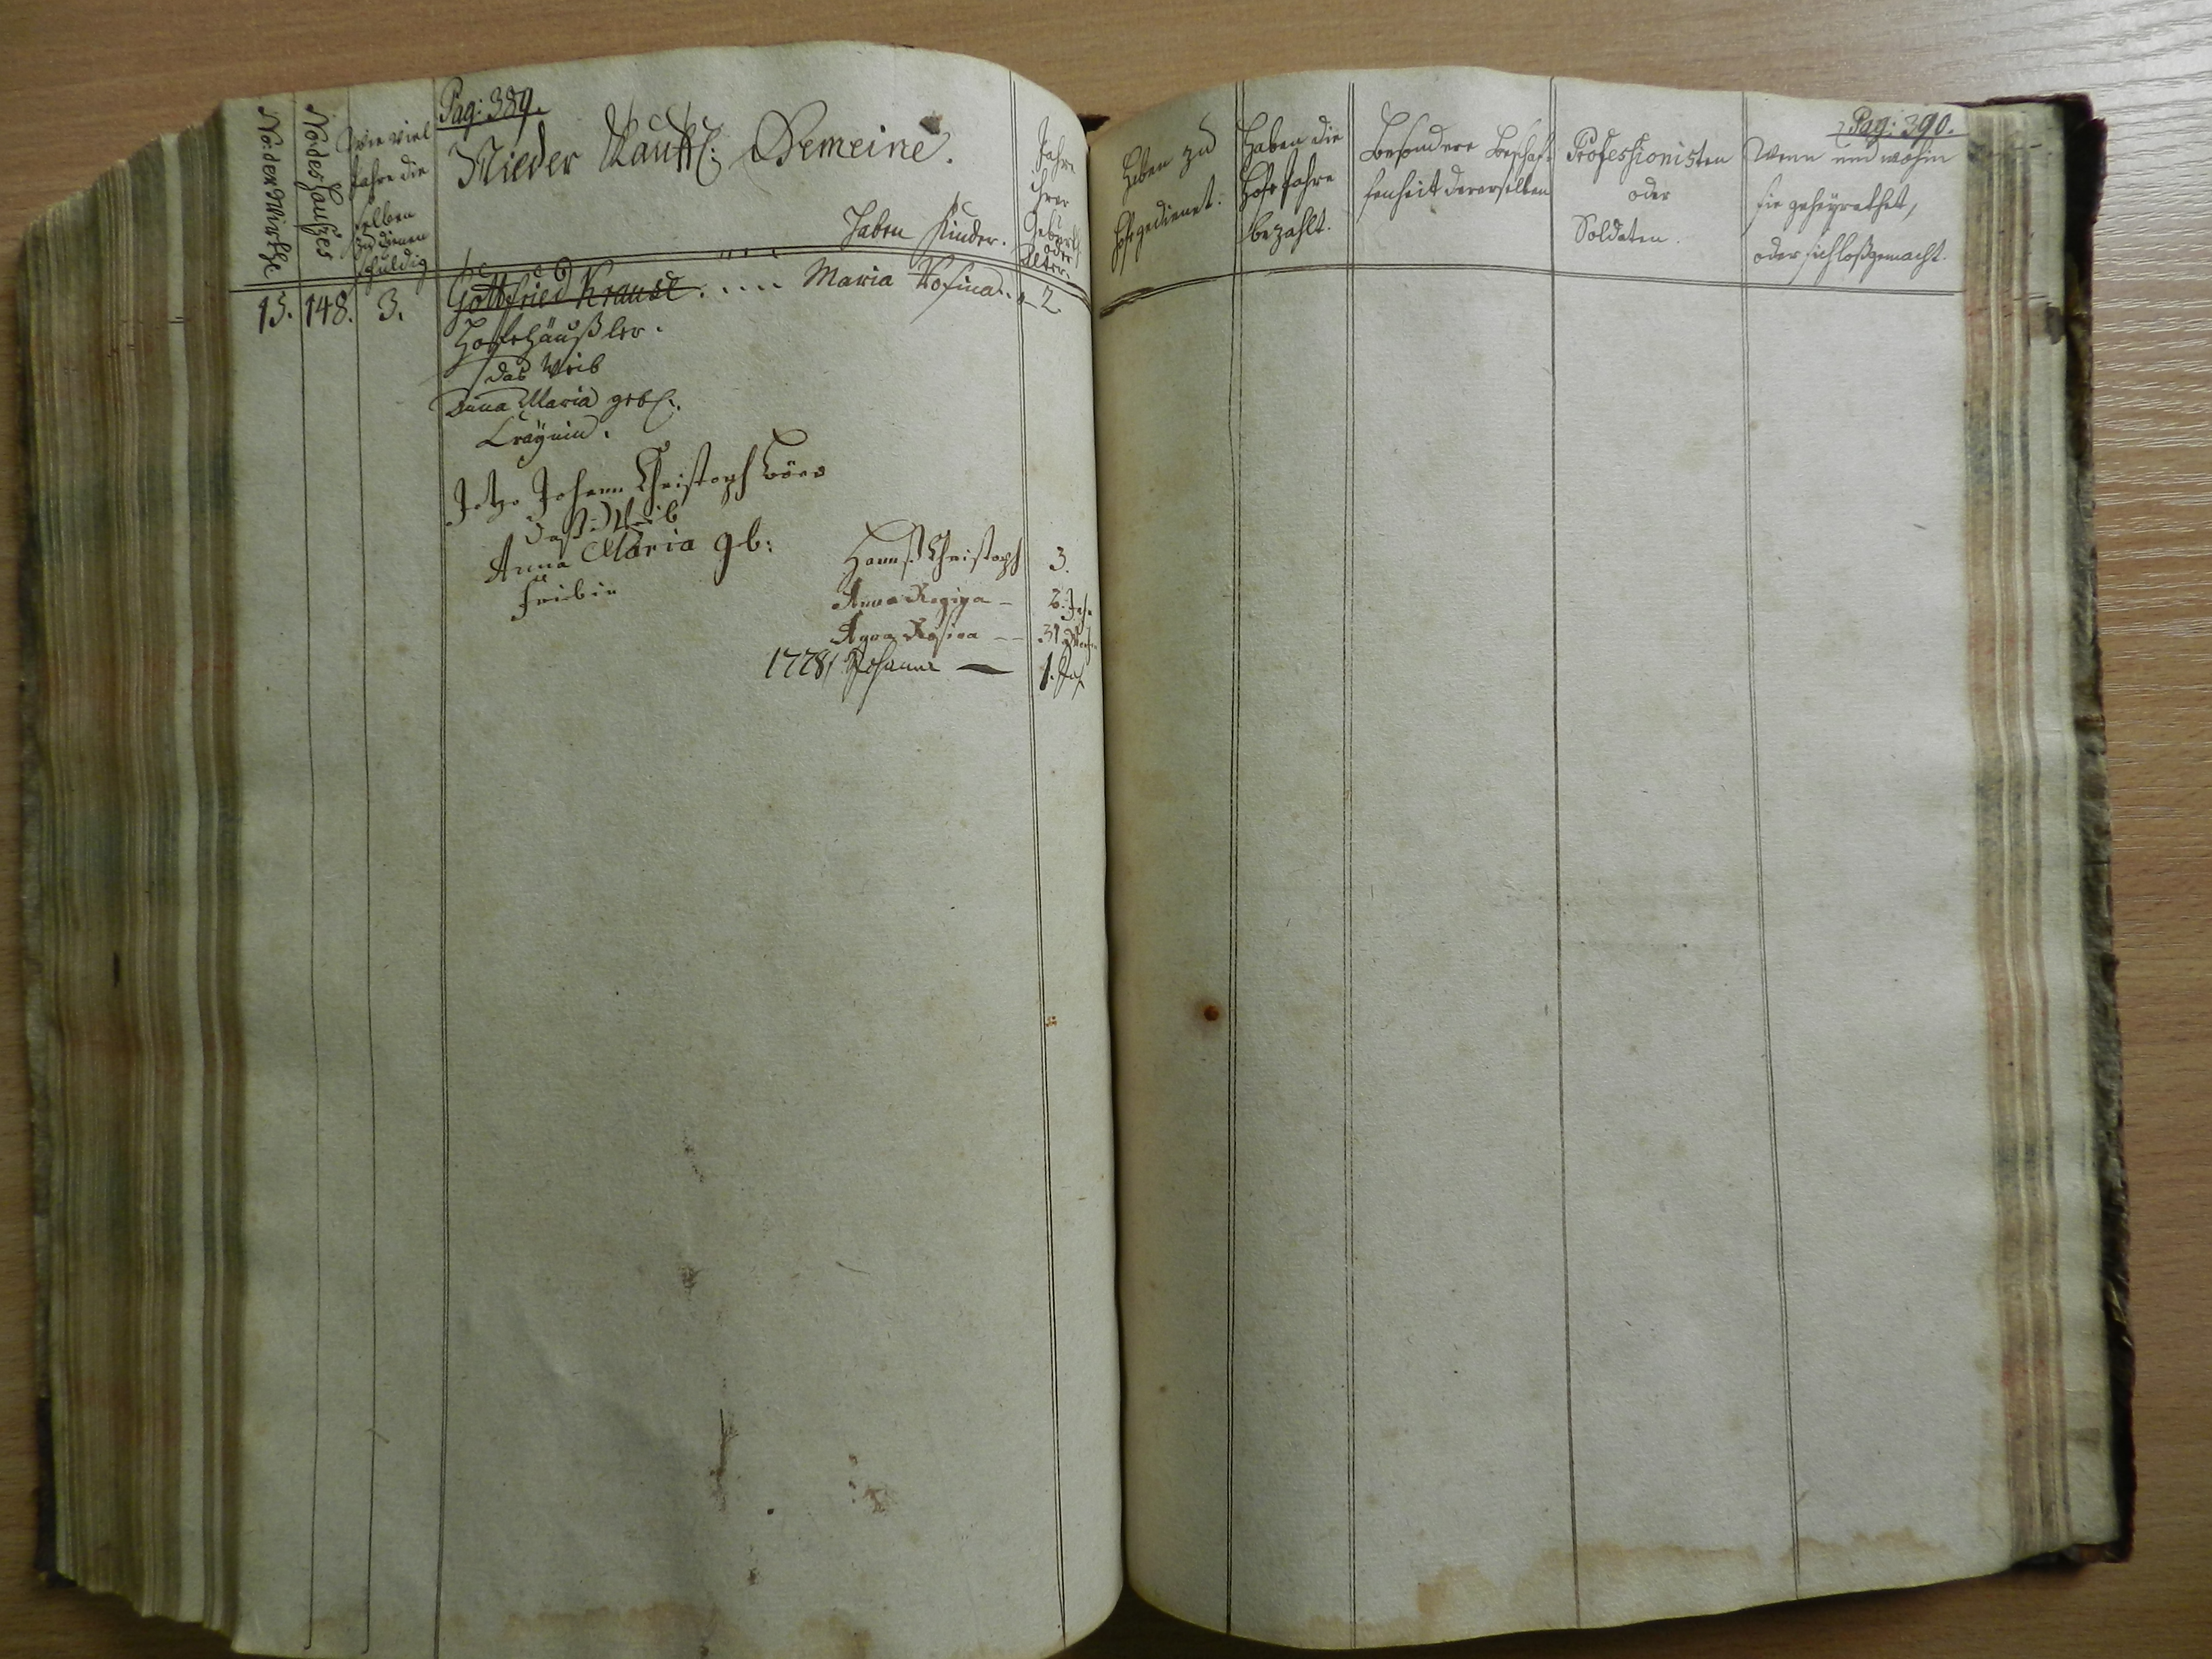 Pag: 389.
Nieder Kauff: Gemeine.
No: der Wirthe
No: des Haußes
Wie viel
Jahre die
selben
zu dienen
schuldig
Haben Kinder.
Jahre
ihrer
Geburth
oder
Alter.
15. 148. 3. Gottfried Krause . . . . . Maria Rosina. 2.
Hofehäußler.
das Weib
Anna Maria geb.
Jetzo Johann Christoph
daß Weib
Anna Maria gb:
Hannß Christoph 3.
Anna Regina - 2. Jahr
Anna Rosina -- 31 Woch
1778 Johanne — 1. Jah
Pag: 390.
Haben zu
Hofe gedienet.
Haben die
Hofe Jahre
bezahlt.
Besondere Beschaf-
fenheit dererselben
Professionisten
oder
Soldaten.
Wenn und wohin
sie geheyrathet,
oder sich loßgemacht.